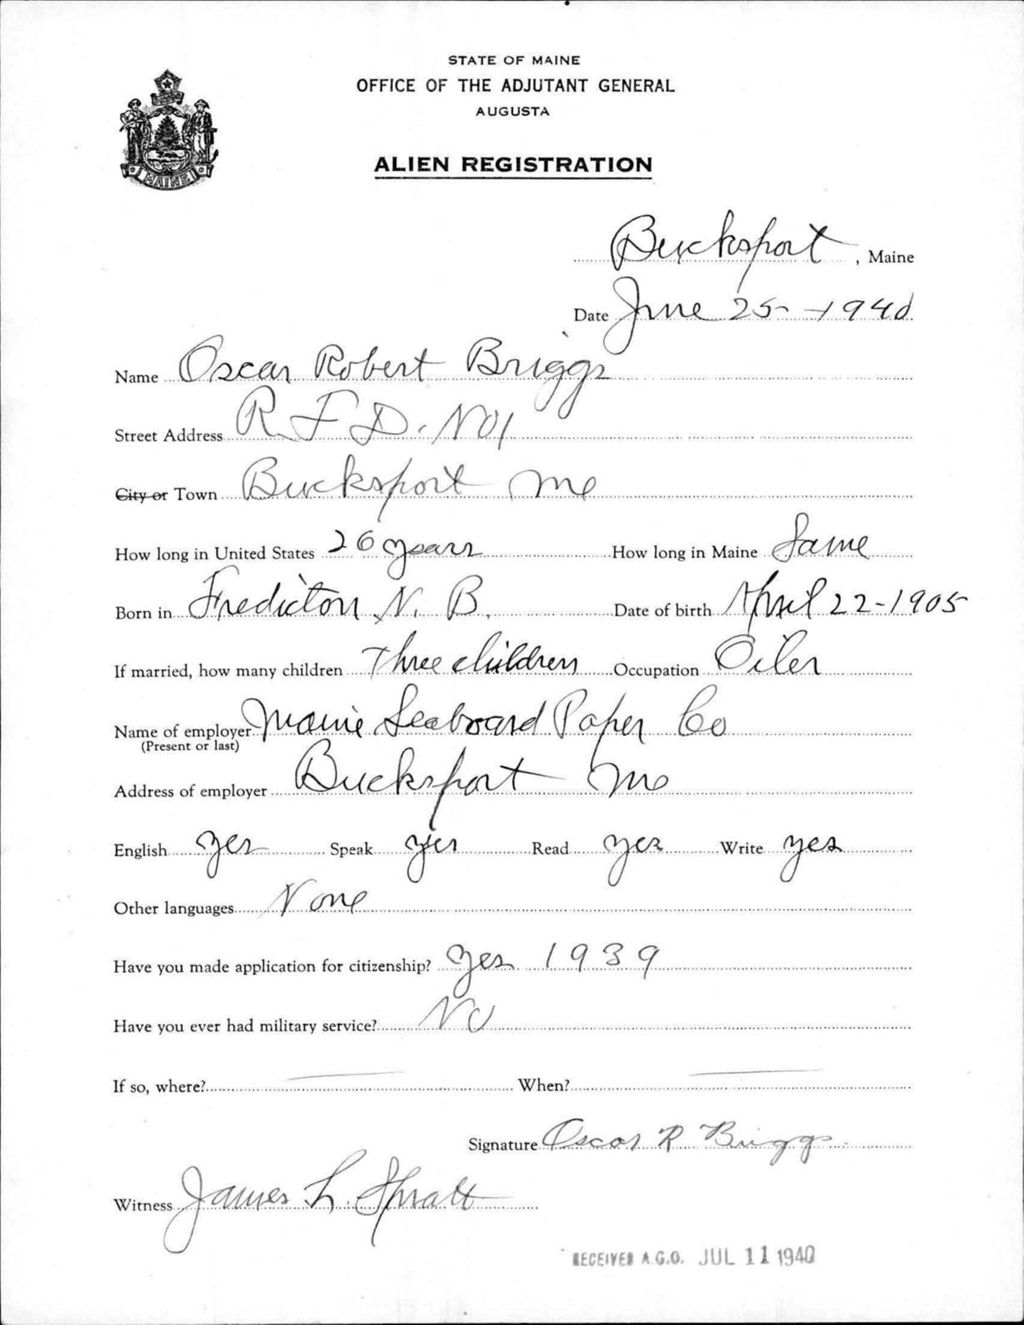 STATE OF MAINE
OFFICE OF THE ADJUTANT GENERAL
AUGUSTA
MAINE
ALIEN REGISTRATION
Bucksport, Maine
Date June 25-1940
Name Oscar Robert Briggs
Street Address R F D. No1
City or Town Bucksport Me
How long in United States 26 years How long in Maine Same
Born in Fredicton N. B. Date of birth April 22-1905
If married, how many children Three children Occupation Oiler
Name of employer Maine Seaboard Paper Co
(Present or last)
Address of employer Bucksport Me
English yes Speak yes Read yes Write yes
Other languages None
Have you made application for citizenship? yes 1939
Have you ever had military service? No
If so, where? When?
Signature Oscar R Briggs
Witness James L. Spratt
RECEIVED A.G.O. JUL 11 1940